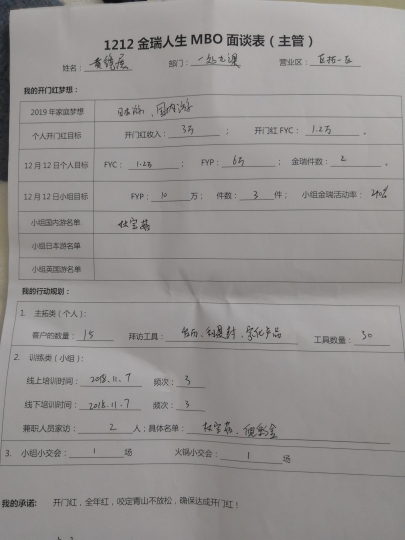 1212金瑞人生MBO面谈表（主管）
姓名： 部门： 营业区：
我的开门红梦想：
2019年家庭梦想 国内游
个人开门红目标 开门红收入：3万； 开门红FYC：1.2万。
12月12日个人目标 FYC：1.2万； FYP：6万； 金瑞件数：2。
12月12日小组目标 FYP：10万； 件数：3件； 小组金瑞活动率：
小组国内游名单
小组日本游名单
小组英国游名单
我的行动规划：
1. 主拓类（个人）：
客户的数量：15 拜访工具：台历、利是封、家化产品 工具数量：30
2. 训练类（小组）：
线上培训时间：2018.11.7 频次：3
线下培训时间：2018.11.7 频次：3
兼职人员家访：2人；具体名单：
3. 小组小交会：1场 火锅小交会：1场
我的承诺： 开门红，全年红，咬定青山不放松，确保达成开门红！